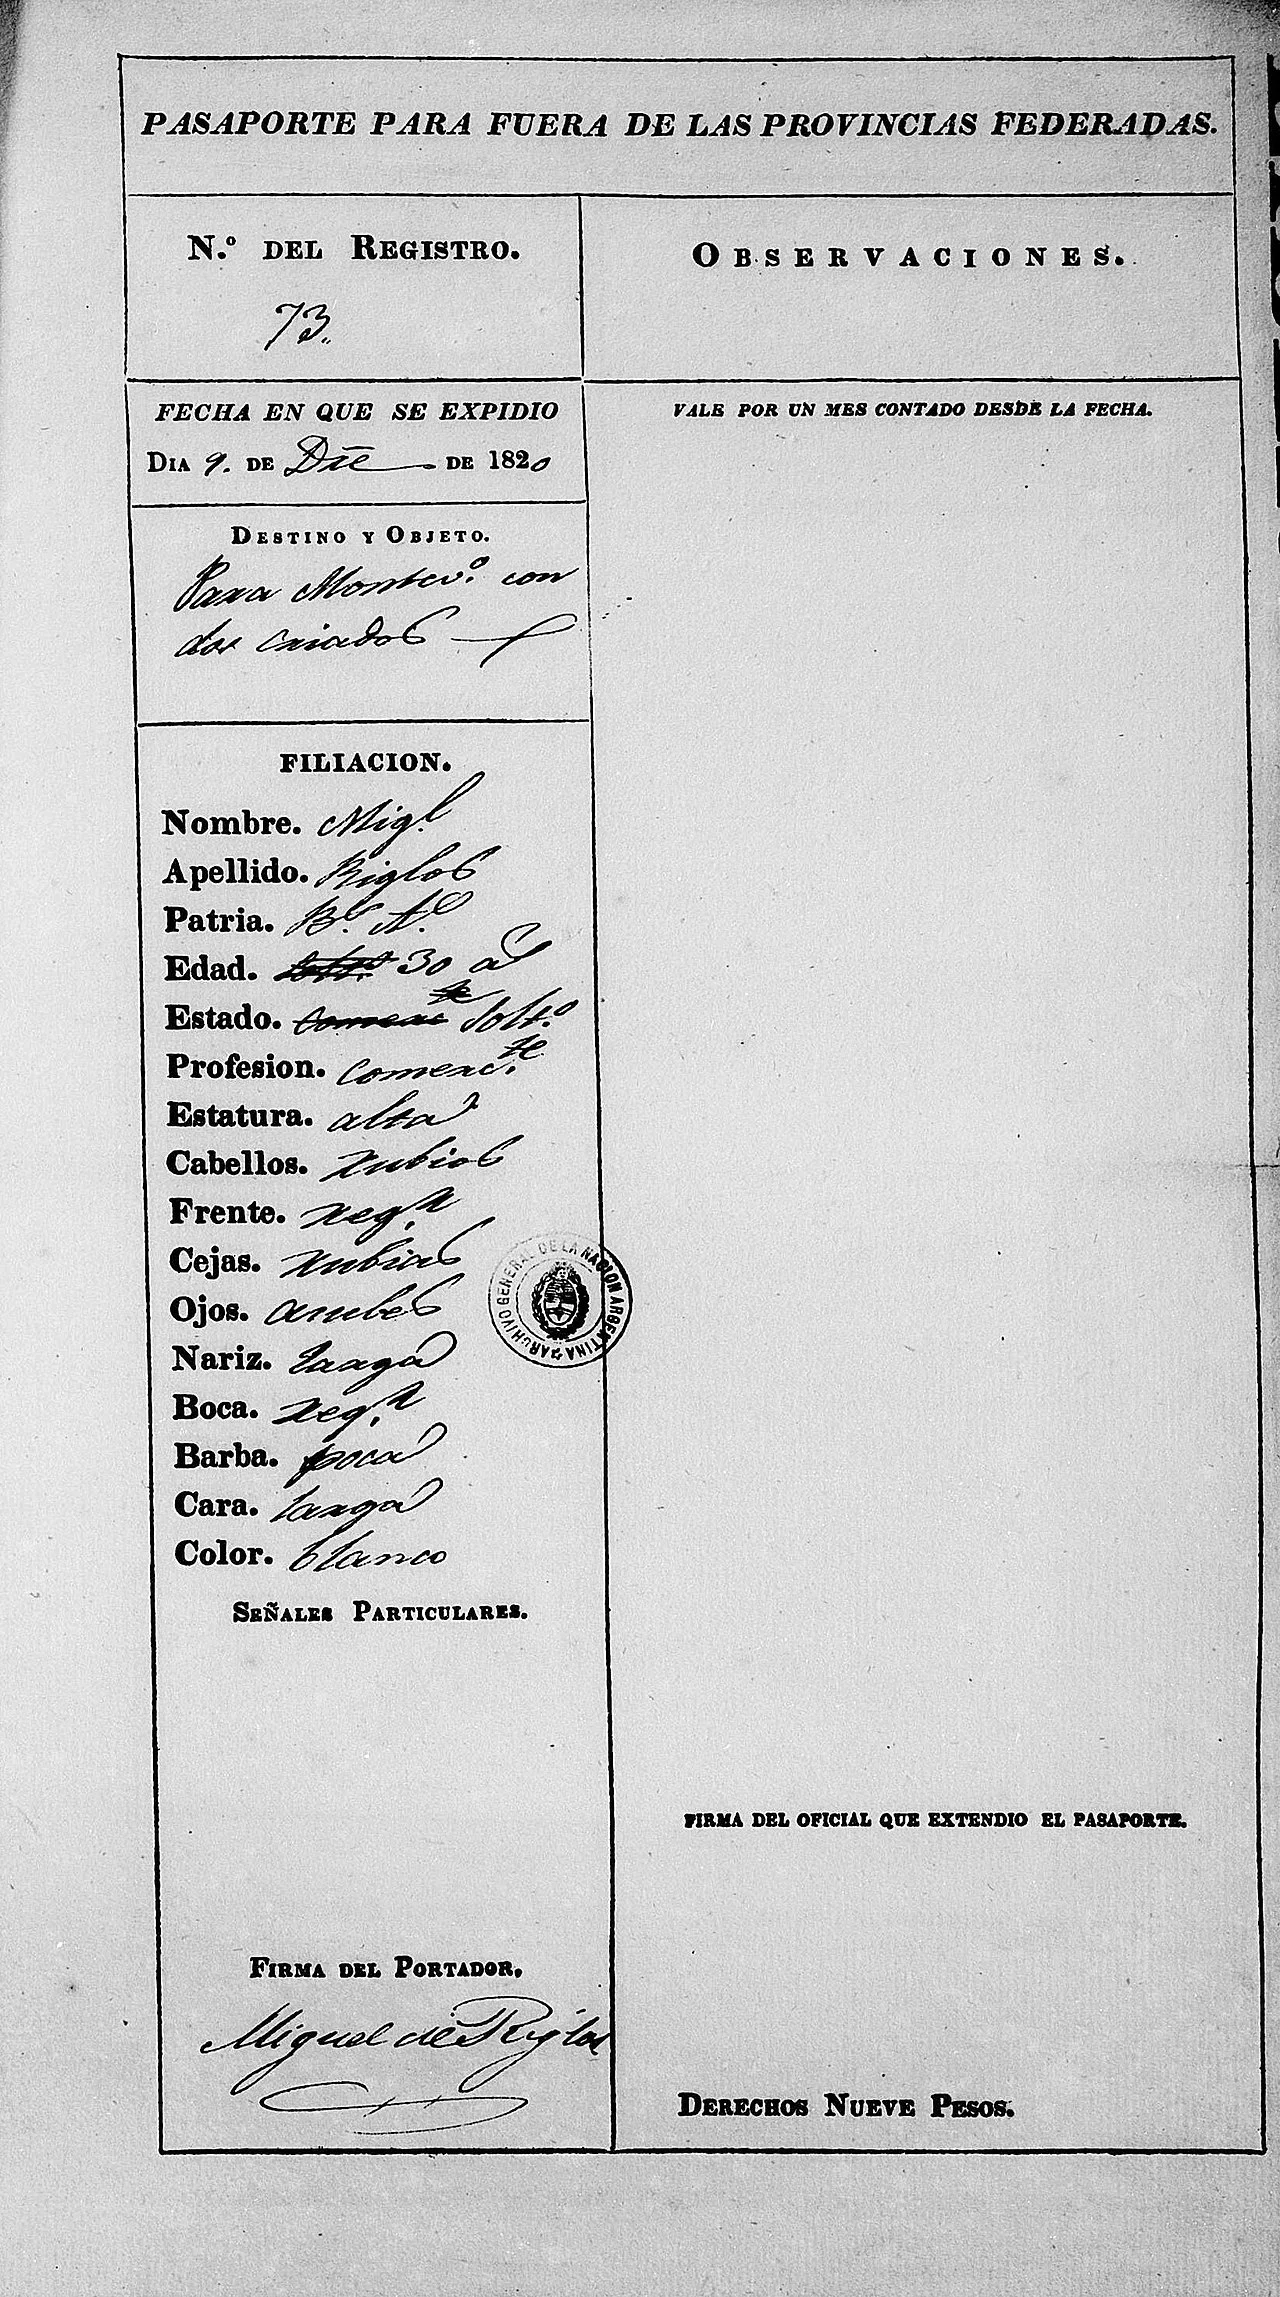 PASAPORTE PARA FUERA DE LAS PROVINCIAS FEDERADAS.
N.º DEL REGISTRO.
73.
OBSERVACIONES.
FECHA EN QUE SE EXPIDIO
DIA 9. DE Dice DE 1820
VALE POR UN MES CONTADO DESDE LA FECHA.
DESTINO Y OBJETO.
Para Montevo. con
dos criados
FILIACION.
Nombre. Migl.
Apellido. Riglos
Patria. Bs. As.
Edad. solto. 30 as
Estado. comercte solto.
Profesion. comercte.
Estatura. alta
Cabellos. rubios
Frente. regr.
Cejas. rubias
Ojos. azules
Nariz. larga
Boca. regr.
Barba. poca
Cara. larga
Color. blanco
SEÑALES PARTICULARES.
ARCHIVO GENERAL DE LA NACION ARGENTINA
FIRMA DEL OFICIAL QUE EXTENDIO EL PASAPORTE.
FIRMA DEL PORTADOR.
Miguel de Riglos
DERECHOS NUEVE PESOS.